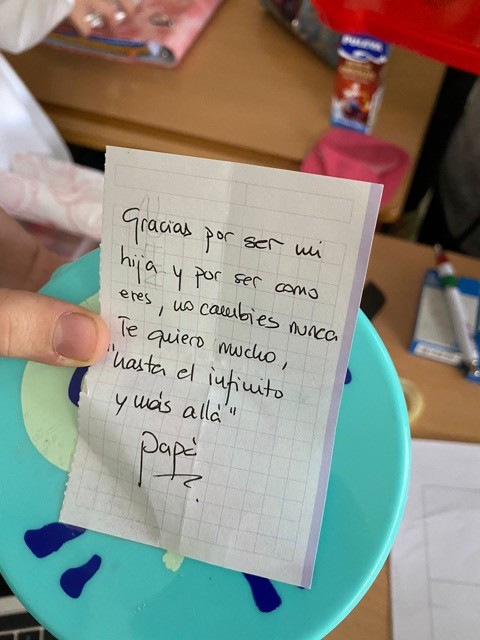 Gracias por ser mi
hija y por ser como
eres, no cambies nunca
Te quiero mucho,
"hasta el infinito
y más allá"
Papá